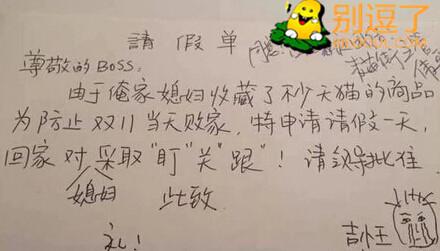 請假单
别逗了
尊敬的BOSS:
由于俺家媳妇收藏了不少天猫的商品
为防止双11当天败家,特申请请假一天,
回家对采取"盯""关""跟"!请领导批准
媳妇
此致
礼!
吉小王